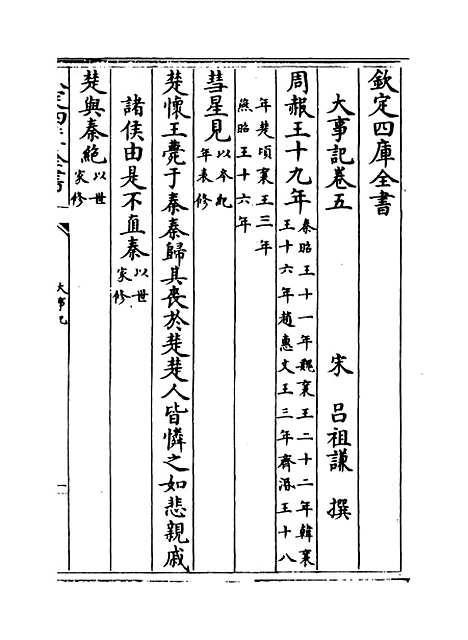 欽定四庫全書
大事記卷五　宋　呂祖謙　撰
周赧王十九年
秦昭王十一年魏襄王二十二年韓襄
王十六年趙惠文王三年齊湣王十八
年楚頃襄王三年
燕昭王十六年
彗星見
以本紀
年表修
楚懷王薨于秦秦歸其喪於楚楚人皆憐之如悲親戚
諸侯由是不直秦
以世
家修
楚與秦絶
以世
家修
大事記
一